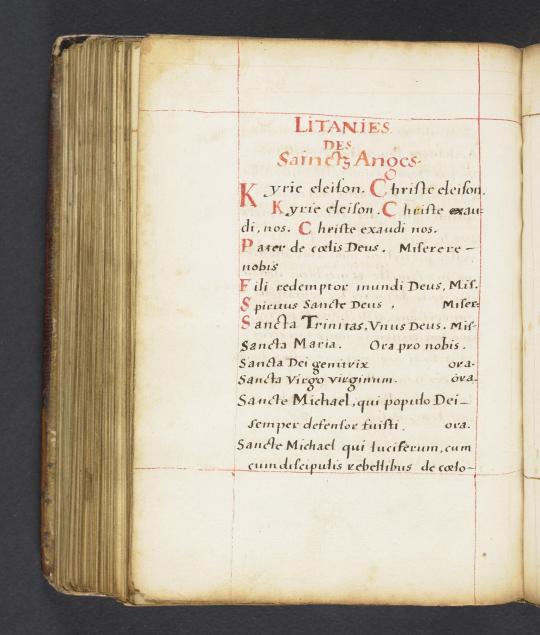 LITANIES
DES
Sainctz Anges.
Kyrie eleison. Christe eleison.
Kyrie eleison. Christe exau=
di, nos. Christe exaudi nos.
Pater de cœlis Deus. Miserere –
nobis
Fili redemptor mundi Deus, Mis.
Spiritus Sancte Deus. Miser:
Sancta Trinitas, Vnus Deus. Mis-
Sancta Maria. Ora pro nobis.
Sancta Dei genitrix ora.
Sancta Virgo virginum. ora.
Sancte Michael, qui populo Dei –
semper defensor fuisti. ora.
Sancte Michael qui luciferum, cum
cum discipulis rebellibus de cœlo –